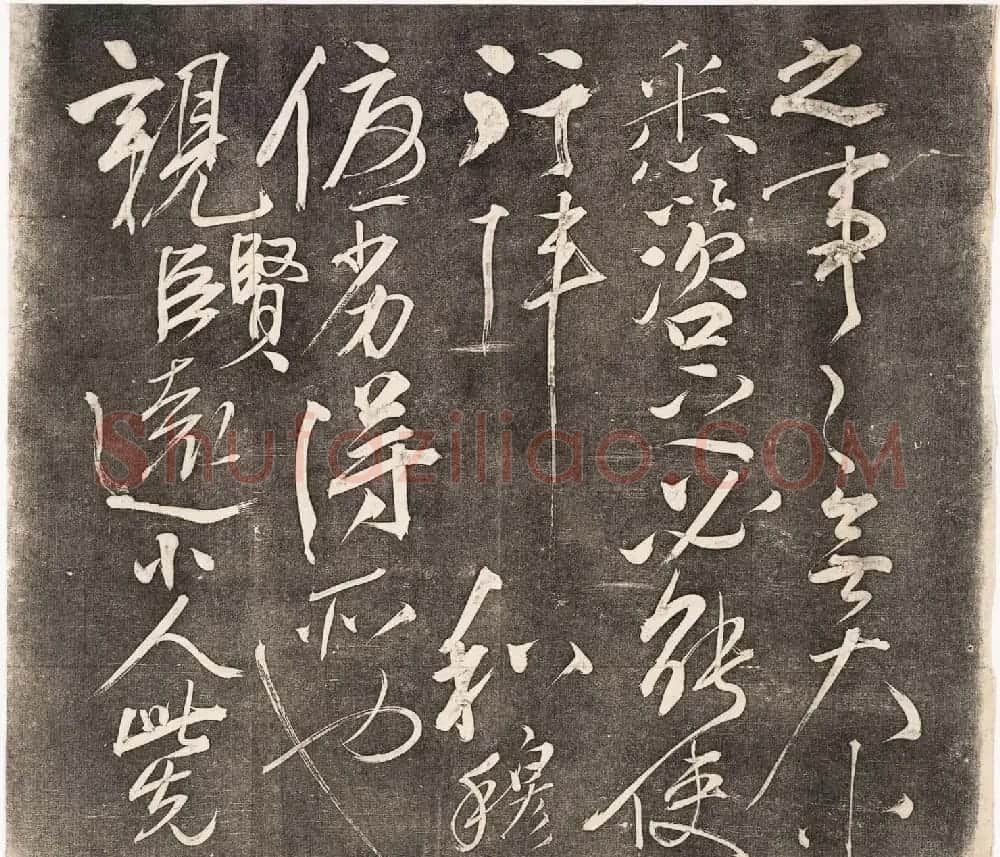 之事〻無大小
悉以咨之必能使
行陣和穆
優劣得所也
親賢臣遠小人此先
Shufaziliao.COM